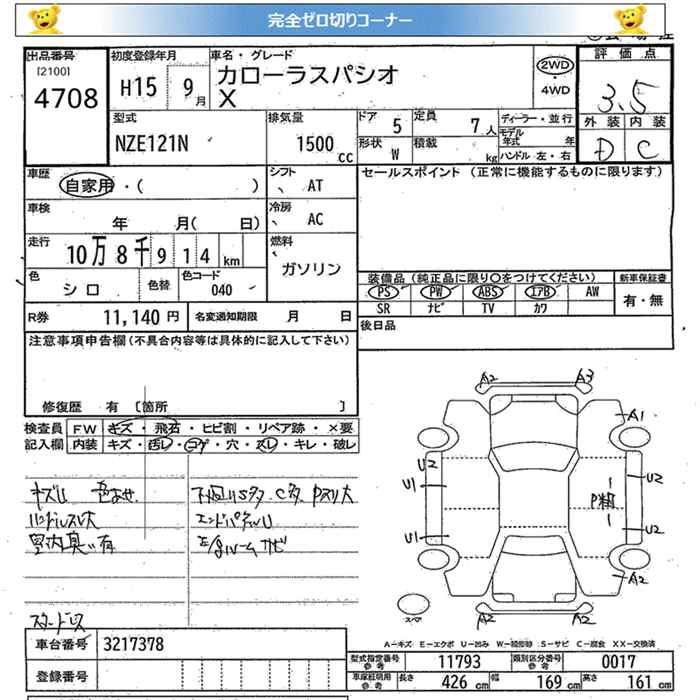 完全ゼロ切りコーナー
出品番号
[2100]
4708
初度登録年月
H15 9月
車名・グレード
カローラスパシオ
X
2WD
・
4WD
評価点
3.5
外装 内装
D C
型式
NZE121N
排気量
1500 cc
ドア 5
定員 7人
形状 W
積載 kg
ディーラー・並行
モデル年式 年
ハンドル 左・右
車歴
自家用・( )
シフト
AT
車検
年 月( 日)
冷房
AC
走行
10万8千914km
燃料
ガソリン
色
シロ
色替
色コード
040
セールスポイント (正常に機能するものに限ります)
装備品(純正品に限り○をつけてください)
新車保証書
PS PW ABS エアB AW
SR ナビ TV カワ
有・無
R券 11,140円
名変通知期限 月 日
後日品
注意事項申告欄(不具合内容等は具体的に記入して下さい)
修復歴 有 [箇所 ]
検査員
記入欄
FW キズ・飛石・ヒビ割・リペア跡・×要
内装 キズ・汚レ・コゲ・穴・スレ・キレ・破レ
キズU 色あせ
ハンドルスレ大
室内臭い有
下回りSタ Cタ Pスリ大
エンドパネルU
E/gルームサビ
スタッドレス
A2 A3
A1
U2
U1
U2
P粗
U1
U2
A2
A2 A2
スペア
A-キズ E-エクボ U-凹み W-補修跡 S-サビ C-腐食 XX-交換済
車台番号 3217378
登録番号
型式指定番号
参考
11793
類別区分番号
参考
0017
車庫証明用
参考
長さ 426cm
幅 169cm
高さ 161cm